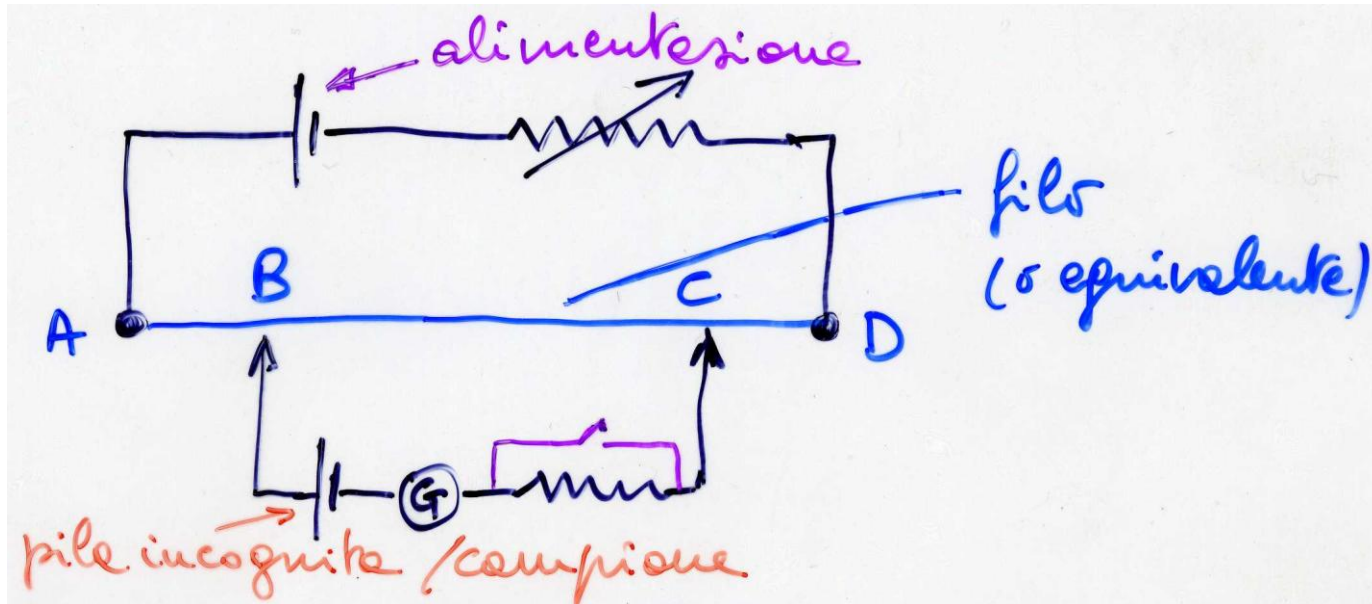 alimentazione
B
C
A
D
filo
(o equivalente)
G
pila incognita / campione